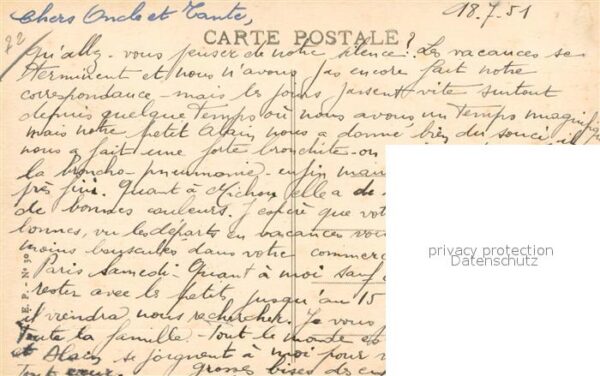 Chers Oncle et Tante,
18.7.51
CARTE POSTALE
Qu'allez-vous penser de notre silence? Les vacances se
terminent et nous n'avons pas encore fait notre
correspondance - mais les jours passent vite surtout
depuis quelque temps où nous avons un temps magnifique
mais notre petit Alain nous a donné bien du souci, il
nous a fait une forte bronchite - on
la broncho-pneumonie - enfin
près fini. Quant à Michou, elle a de
de bonnes couleurs. J'espère que
bonnes, vu les départs en vacances vous
moins bousculés dans votre commerce
Paris samedi. Quant à moi sauf
rester avec les petits jusqu'au 15
il viendra nous rechercher. Je vous
toute la famille. Tout le monde
et Alain se joignent à moi pour
tout cœur. Grosses bises des
E. P. - No 30
privacy protection
Datenschutz